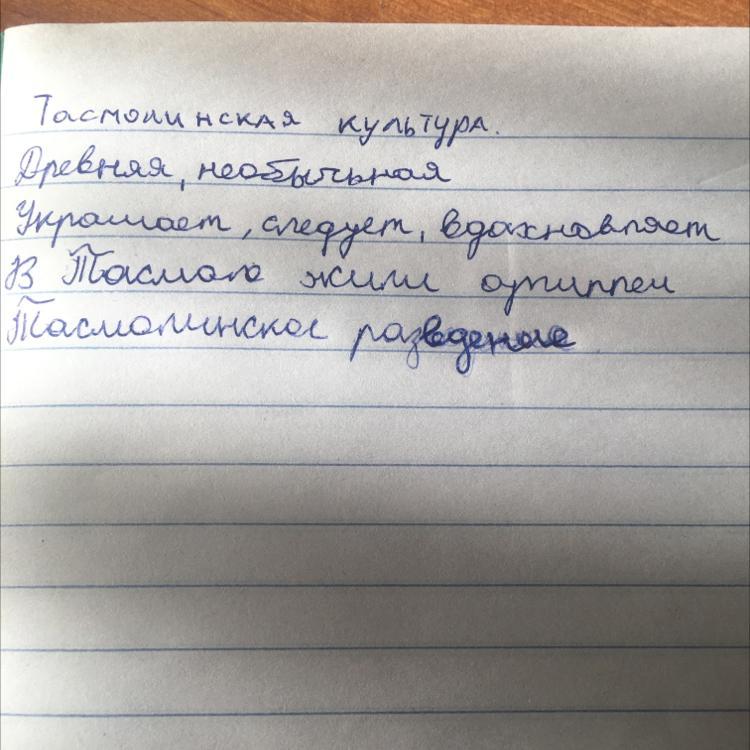 Тасмолинская культура.
Древняя, необычьная
Украшает, следует, вдохновляет
В Тасмоло жили
Тасмолинское разведение